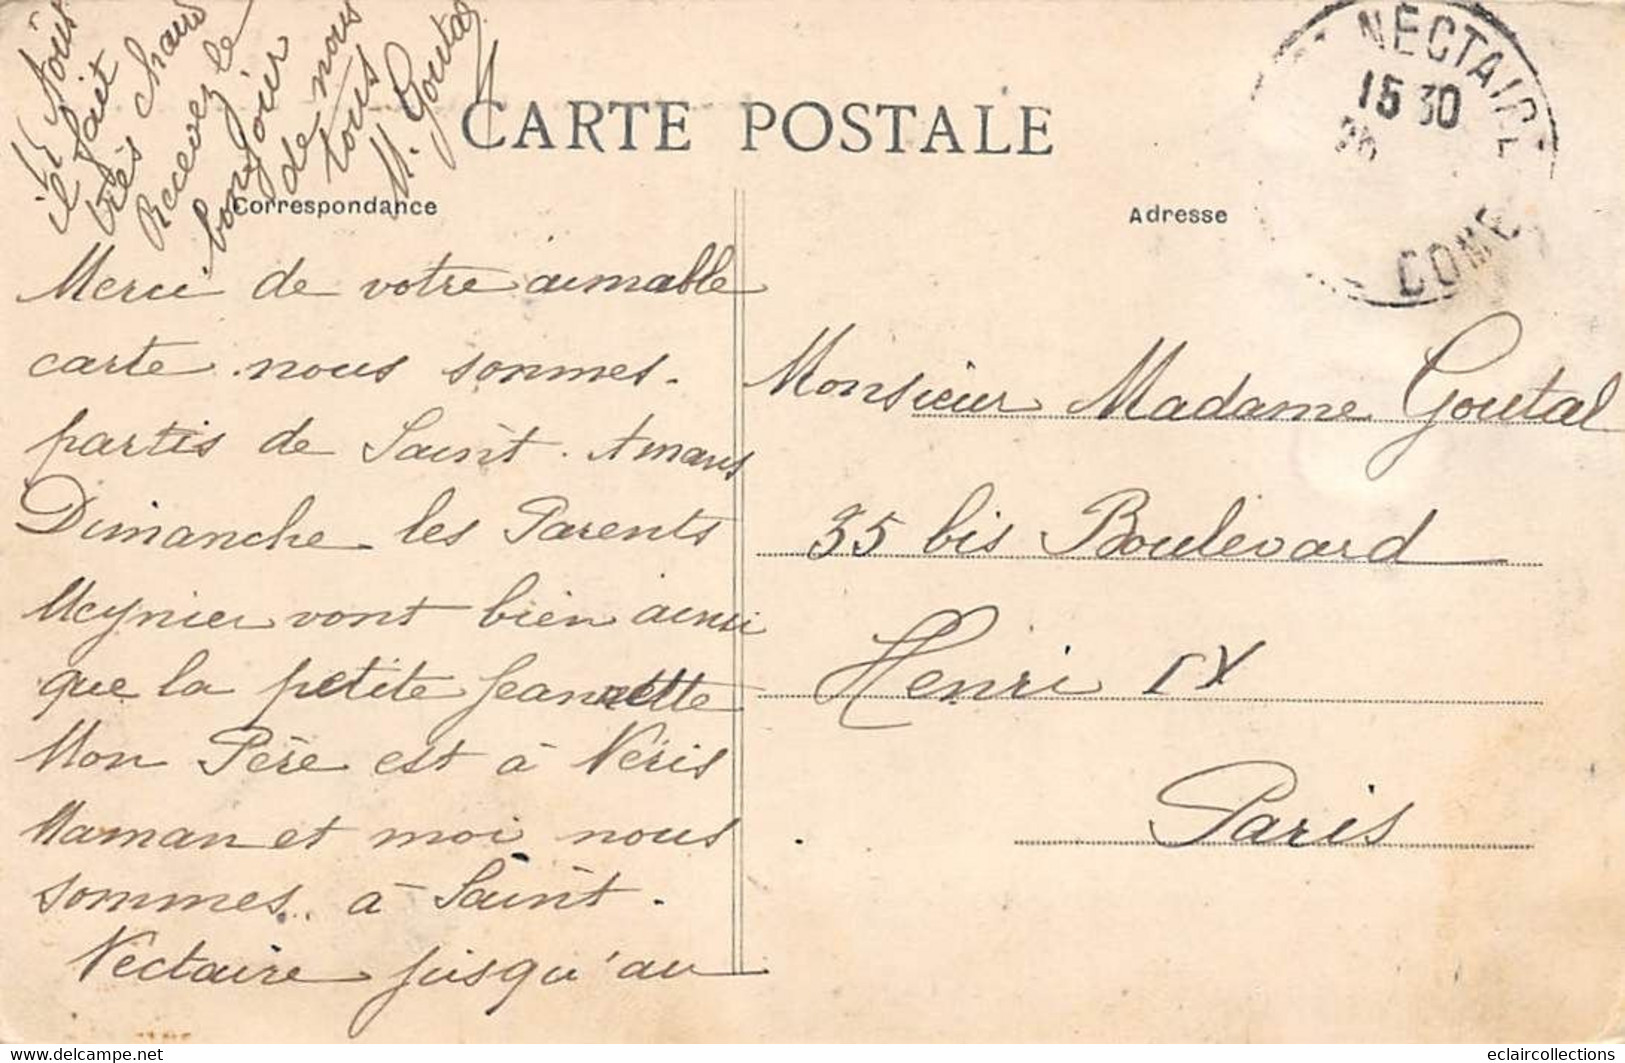 CARTE POSTALE
Correspondance
Adresse
NECTAIRE
15 30
DOME
Merci de votre aimable
carte. nous sommes.
partis de Saint. Amans
Dimanche les Parents
Meynier vont bien ainsi
que la petite Jeannette
Mon Père est à Néris
Maman et moi nous
sommes.. à Saint.
Nectaire jusqu'au
15 Août
il fait
très chaud
Recevez le
bonjour
de nous
tous
M. Goutal
Monsieur Madame Goutal
35 bis Boulevard
Henri IV
Paris
eclaircollections
www.delcampe.net